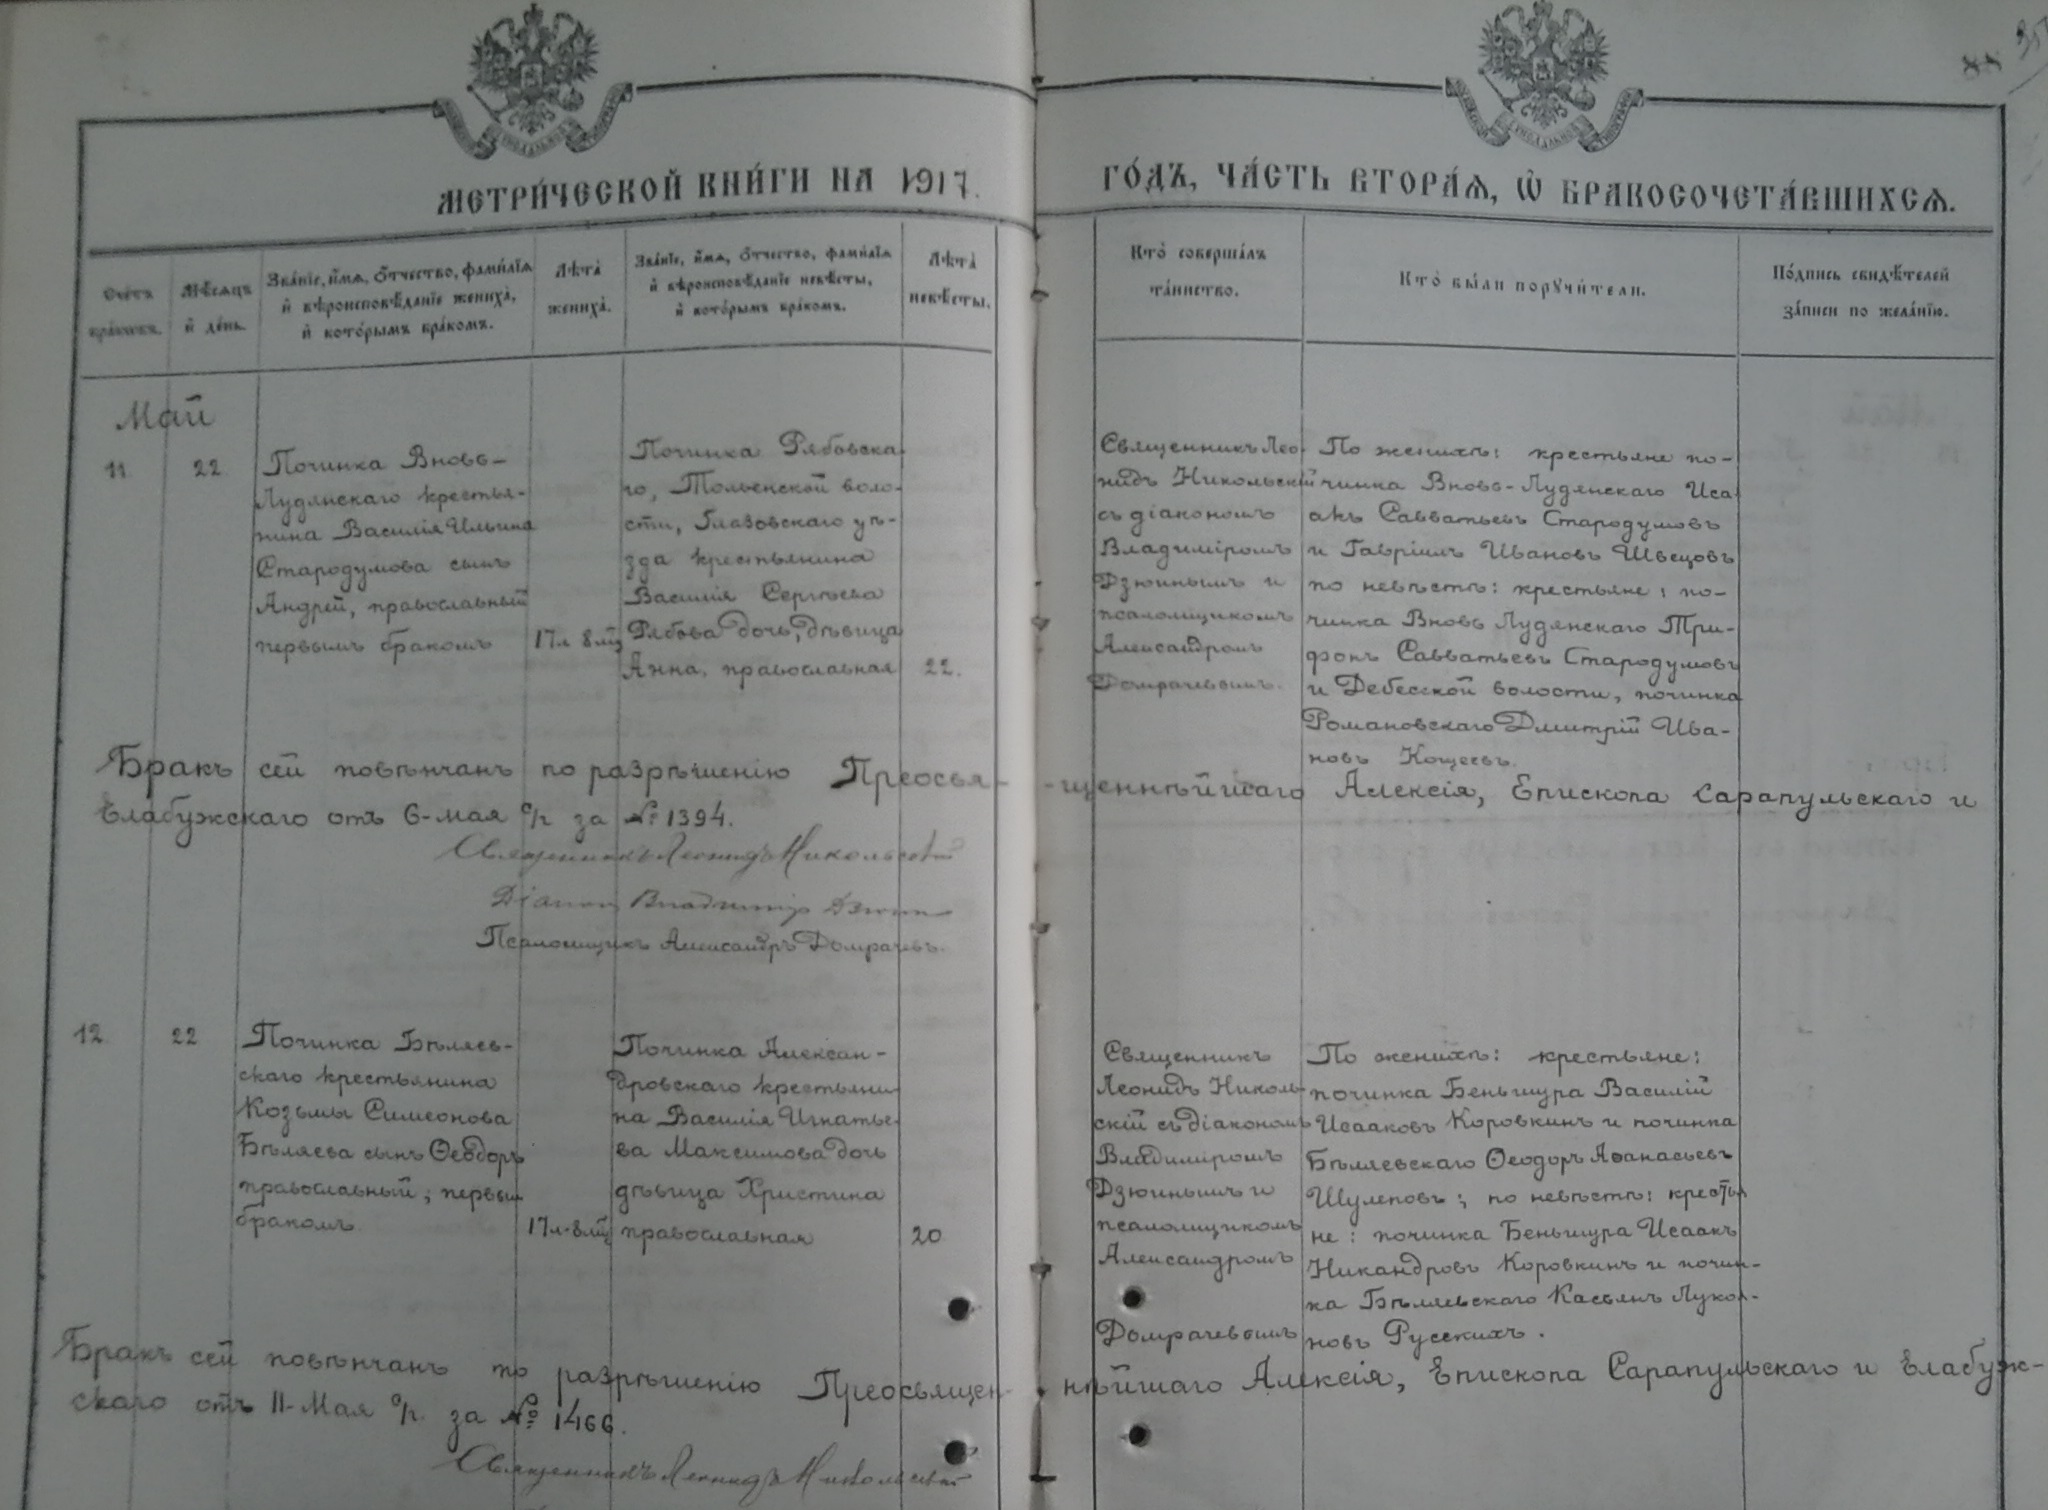 МЕТРИ́ЧЕСКОЙ КНИ́ГИ НА 1917.
ГО́ДЪ, ЧА́СТЬ ВТОРА́Ѧ, Ѡ҆ БРАКОСОЧЕТА́ВШИХСѦ.
Сче́тъ
бра́ковъ.
Мѣ́сяцъ
и҆ де́нь.
Зва́нїе, и҆́мѧ, ѻ҆́тчество, фами́лїѧ
и҆ вѣроисповѣ́данїе жениха̀,
и҆ кото́рымъ бра́комъ.
Лѣта̀
жениха̀.
Зва́нїе, и҆́мѧ, ѻ҆́тчество, фами́лїѧ
и҆ вѣроисповѣ́данїе невѣ́сты,
и҆ кото́рымъ бра́комъ.
Лѣта̀
невѣ́сты.
Кто̀ соверша́лъ
та́инство.
Кто̀ бы́ли порꙋчи́тели.
По́дпись свидѣ́телей
за́писи по жела́нїю.
Май
11
22
Починка Вновь-
Лудянскаго крестья-
нина Василія Ильина
Стародумова сынъ
Андрей, православный
первымъ бракомъ
17 л 8 м
Починка Рябовска-
го, Тольенской воло-
сти, Глазовскаго уѣ-
зда крестьянина
Василія Сергѣева
Рябова дочь, дѣвица
Анна, православная
22.
Священникъ Лео-
нидъ Никольскій
съ діакономъ
Владиміромъ
Дзюинымъ и
псаломщикомъ
Александромъ
Домрачевымъ.
По женихѣ: крестьяне по-
чинка Вновь-Лудянскаго Иса-
акъ Савватьевъ Стародумовъ
и Гавріилъ Ивановъ Швецовъ
по невѣстѣ: крестьяне: по-
чинка Вновь Лудянскаго Три-
фонъ Савватьевъ Стародумовъ
и Дебесской волости, починка
Романовскаго Дмитрій Ива-
новъ Кощеевъ.
Бракъ сей повѣнчанъ по разрѣшенію Преосвя- -щеннѣйшаго Алексія, Епископа Сарапульскаго и
Елабужскаго отъ 6-мая с/г за № 1394.
Священникъ Леонидъ Никольскій
Діаконъ Владимір Дзюин
Псаломщикъ Александръ Домрачевъ.
12
22
Починка Бѣляев-
скаго крестьянина
Козьмы Симеонова
Бѣляева сынъ Ѳеодоръ
православный; первым
бракомъ.
17 л. 8 м
Починка Алексан-
дровскаго крестьяни-
на Василія Игнатье-
ва Максимова дочь
дѣвица Христина
православная
20
Священникъ
Леонидъ Николь-
скій съ діакономъ
Владиміромъ
Дзюинымъ и
псаломщикомъ
Александромъ
Домрачевымъ
По женихѣ: крестьяне:
починка Беньшура Василій
Исааковъ Коровкинъ и починка
Бѣляевскаго Ѳеодоръ Аѳанасьевъ
Шулеповъ; по невѣстѣ: крестья
не: починка Беньшура Исаакъ
Никандровъ Коровкинъ и почин-
ка Бѣляевскаго Касьянъ Лукоя-
новъ Русскихъ.
Бракъ сей повѣнчанъ по разрѣшенію Преосвящен- нѣйшаго Алексія, Епископа Сарапульскаго и Елабуж-
скаго отъ 11-Мая с/г. за № 1466.
Священникъ Леонидъ Никольскій